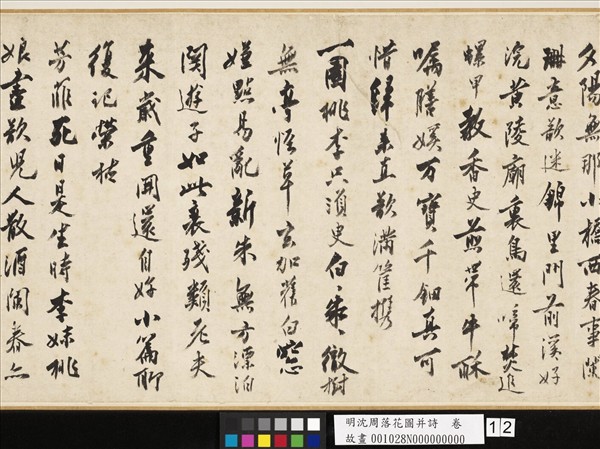 夕陽無那小橋西春事闌
珊意欲迷錦里門前溪好
浣黃陵廟裏鳥還啼焚追
螺甲教香史煎帶牛酥
囑膳媄万寶千鈿真可
惜歸来直欲滿筐携
一園桃李只須臾白〻朱〻徹樹
無亭怪草玄加舊白窓
嫌點易亂新朱無方漂泊
関遊子如此衰殘類老夫
来歲重開還自好小篇聊
復記榮枯
芳菲死日是生時李妹桃
娘盡欲兒人散酒闌春亦
明沈周落花圖并詩 卷
故畫 001028N000000000
12